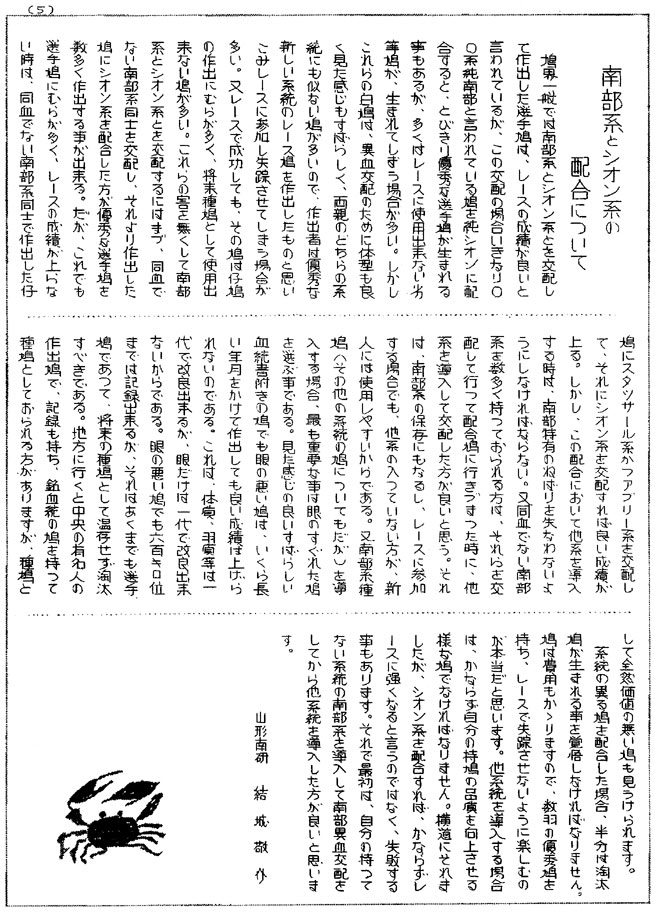 (5)
南部系とシオン系の
配合について
鳩界一般では南部系とシオン系とを交配し
て作出した選手鳩は、レースの成績が良いと
言われているが、この交配の場合いきなり〇
〇系純南部と言われている鳩を純シオンに配
合すると、とびきり優秀な選手鳩が生まれる
事もあるが、多くはレースに使用出来ない劣
等鳩が、生まれてしまう場合が多い。しかし
これらの白鳩は、異血交配のために体型も良
く見た感じもすばらしく、両親のどちらの系
統にも似ない鳩が多いので、作出者は優秀な
新しい系統のレース鳩を作出したものと思い
こみレースに参加し失踪させてしまう場合が
多い。又レースで成功しても、その鳩は仔鳩
の作出にむらが多く、将来種鳩として使用出
来ない鳩が多い。これらの害を無くして南部
系とシオン系とを交配するにはまづ、同血で
ない南部系同士を交配し、それより作出した
鳩にシオン系を配合した方が優秀な選手鳩を
数多く作出する事が出来る。だが、これでも
選手鳩にむらが多く、レースの成績が上らな
い時は、同血でない南部系同士で作出した仔
鳩にスタッサール系かファブリー系を交配し
て、それにシオン系を交配すれば良い成績が
上る。しかし、この配合において他系を導入
する時は、南部特有のねばりを失なわないよ
うにしなければならない。又同血でない南部
系を数多く持っておられる方は、それらを交
配して行って配合鳩に行きづまった時に、他
系を導入して交配した方が良いと思う。それ
は、南部系の保存にもなるし、レースに参加
する場合でも、他系の入っていない方が、新
人には使用しやすいからである。又南部系種
鳩(その他の系統の鳩についてもだが)を導
入する場合、最も重要な事は眼のすぐれた鳩
を選ぶ事である。見た感じの良いすばらしい
血統書附きの鳩でも眼の悪い鳩は、いくら長
い年月をかけて作出しても良い成績は上げら
れないのである。これは、体質、羽質等は一
代で改良出来るが、眼だけは一代で改良出来
ないからである。眼の悪い鳩でも六百キロ位
までは記録出来るが、それはあくまでも選手
鳩であって、将来の種鳩として温存せず淘汰
すべきである。地方に行くと中央の有名人の
作出鳩で、記録も持ち、銘血統の鳩を持って
種鳩としておられる方がありますが、種鳩と
して全然価値の無い鳩も見うけられます。
系統の異る鳩を配合した場合、半分は淘汰
鳩が生まれる事を覚悟しなければなりません。
鳩は費用もかゝりますので、数羽の優秀鳩を
持ち、レースで失踪させないように楽しむの
が本当だと思います。他系統を導入する場合
は、かならず自分の持鳩の品質を向上させる
様な鳩でなければなりません。横道にそれま
したが、シオン系を配合すれば、かならずレ
ースに強くなると言うのではなく、失敗する
事もあります。それで最初は、自分の持って
ない系統の南部系を導入して南部異血交配を
してから他系統を導入した方が良いと思いま
す。
山形南研 結城敬作